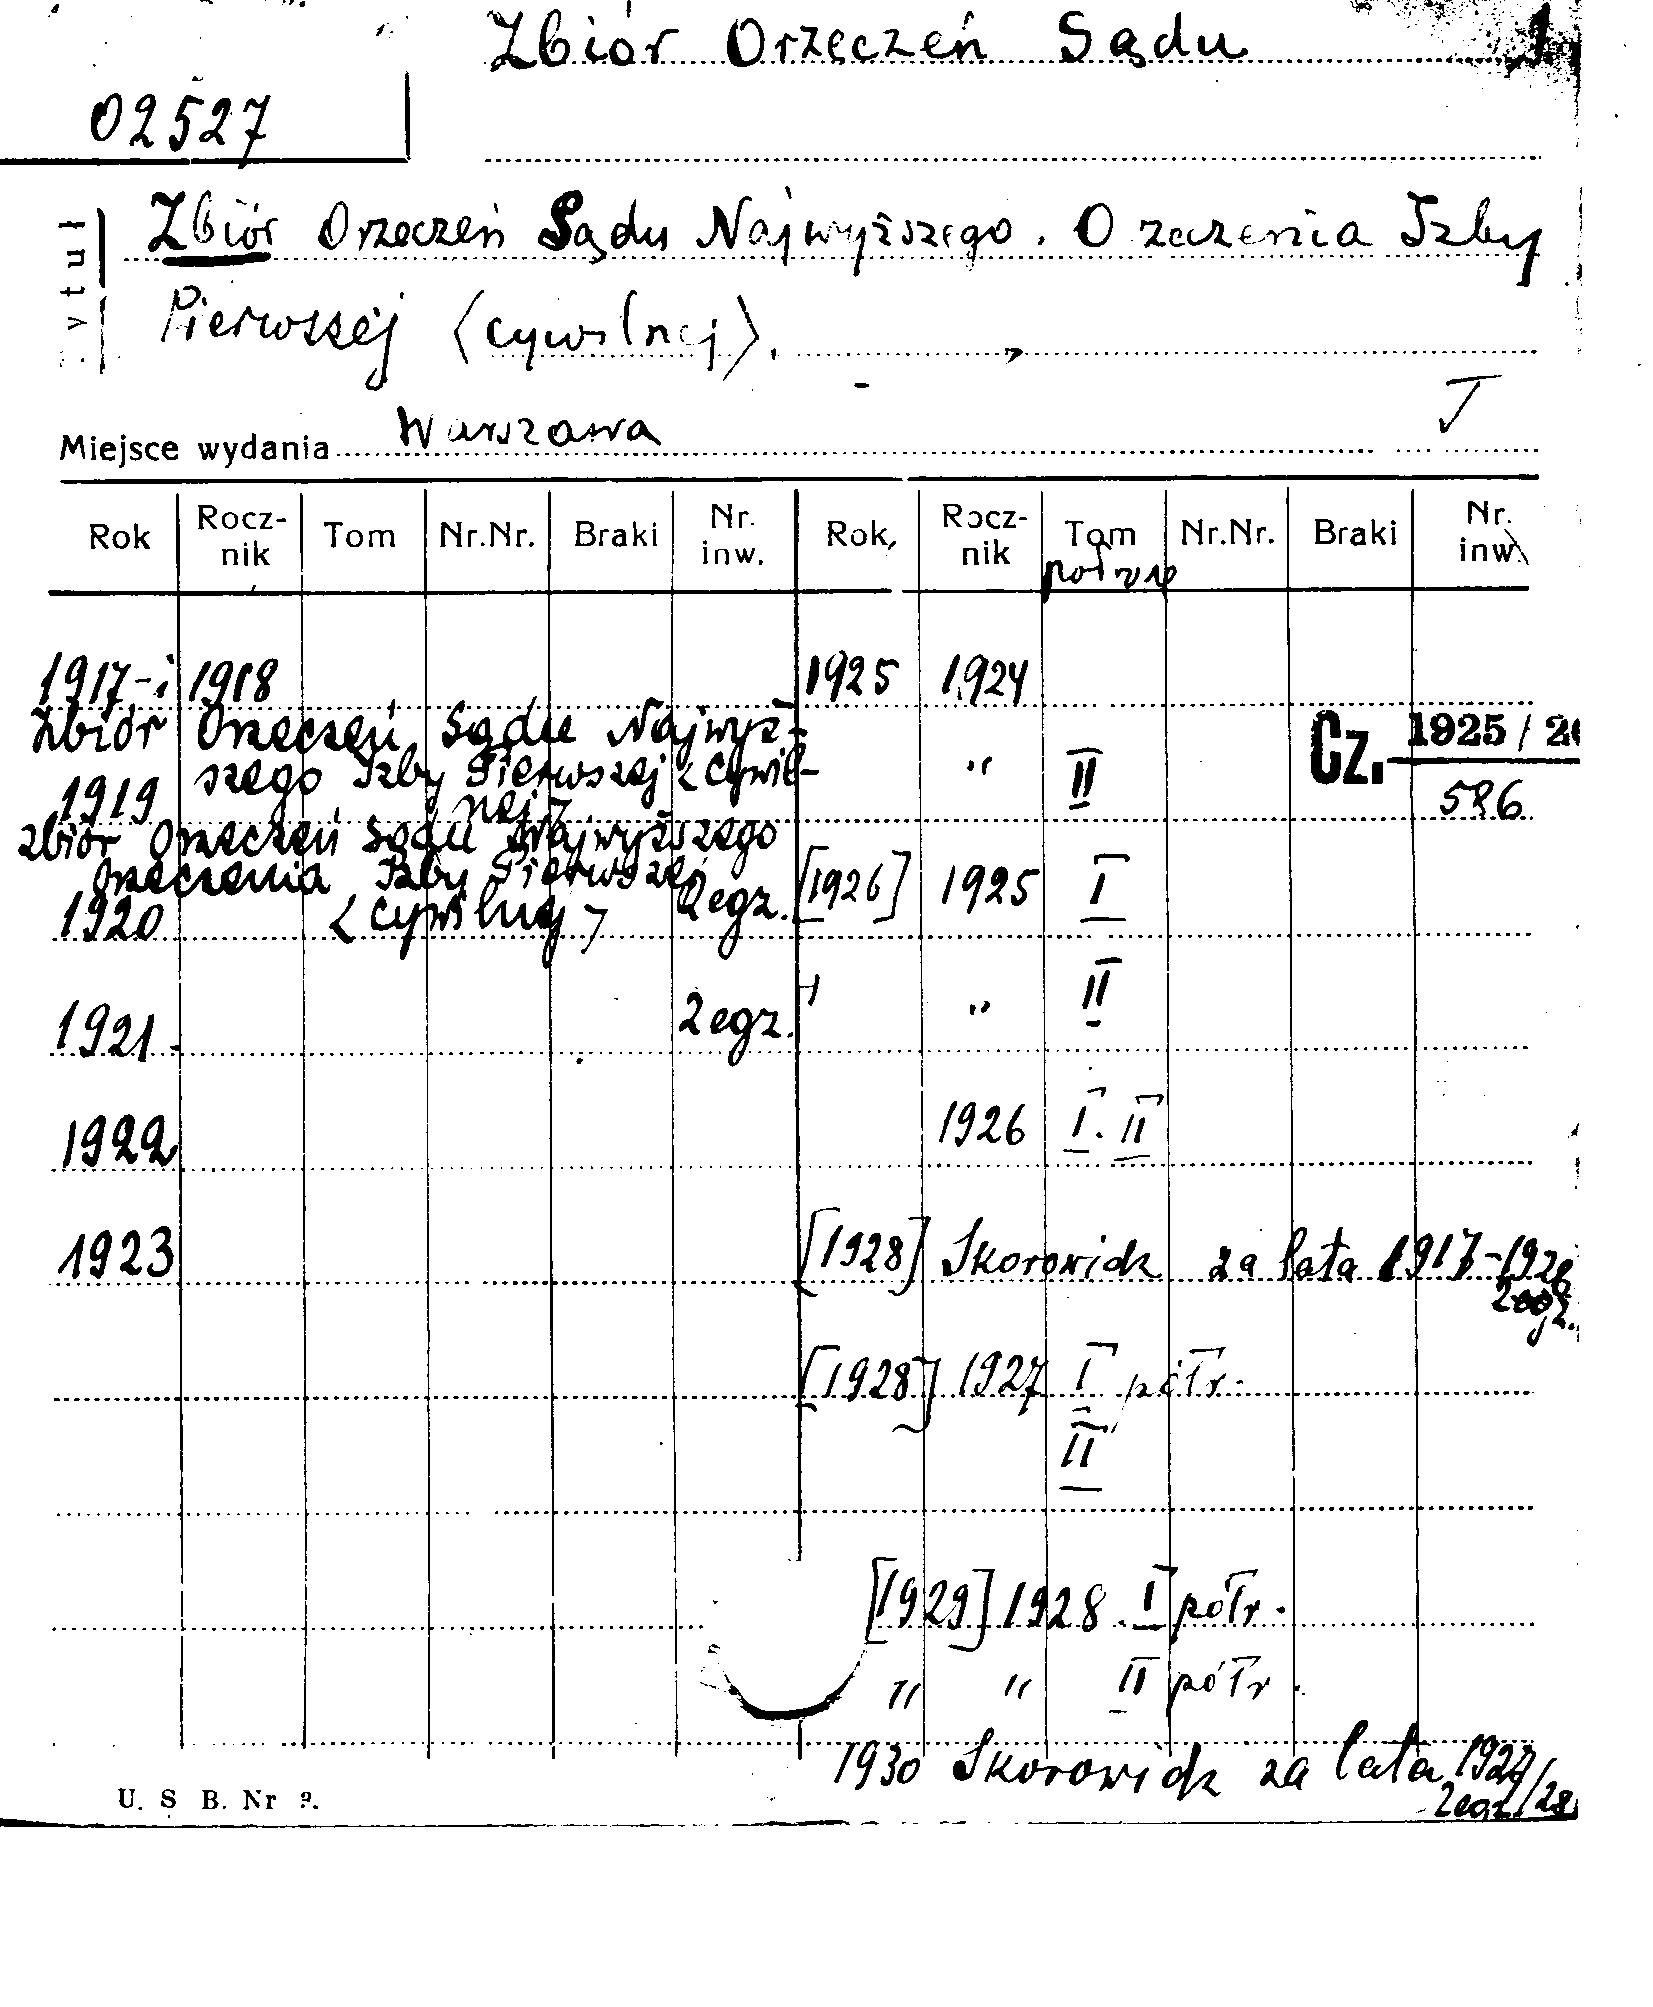 Zbiór Orzeczeń Sądu
1
02527
Zbiór Orzeczeń Sądu Najwyższego. Orzeczenia Izby
Pierwszej (cywilnej).
Miejsce wydania Warszawa
Rok Rocz-nik Tom Nr.Nr. Braki Nr. inw. Rok Rocz-nik Tom Nr.Nr. Braki Nr. inw.
1917-i 1918 1925 1924
Zbiór Orzeczeń Sądu Najwyż-
szego Izby Pierwszej (Cywil-
nej)
1919 " II Cz. 1925/26
586
Zbiór Orzeczeń Sądu Najwyższego
Orzeczenia Izby Pierwszej
1920 (cywilnej) 2egz. [1926] 1925 I
1921 2egz. " " II
1922 1926 I. II
1923 [1928] Skorowidz za lata 1917-1926
2egz.
[1928] 1927 I półr.
II
[1929] 1928. I półr.
" " II półr.
1930 Skorowidz za lata 1927/28
2egz.
U. S B. Nr